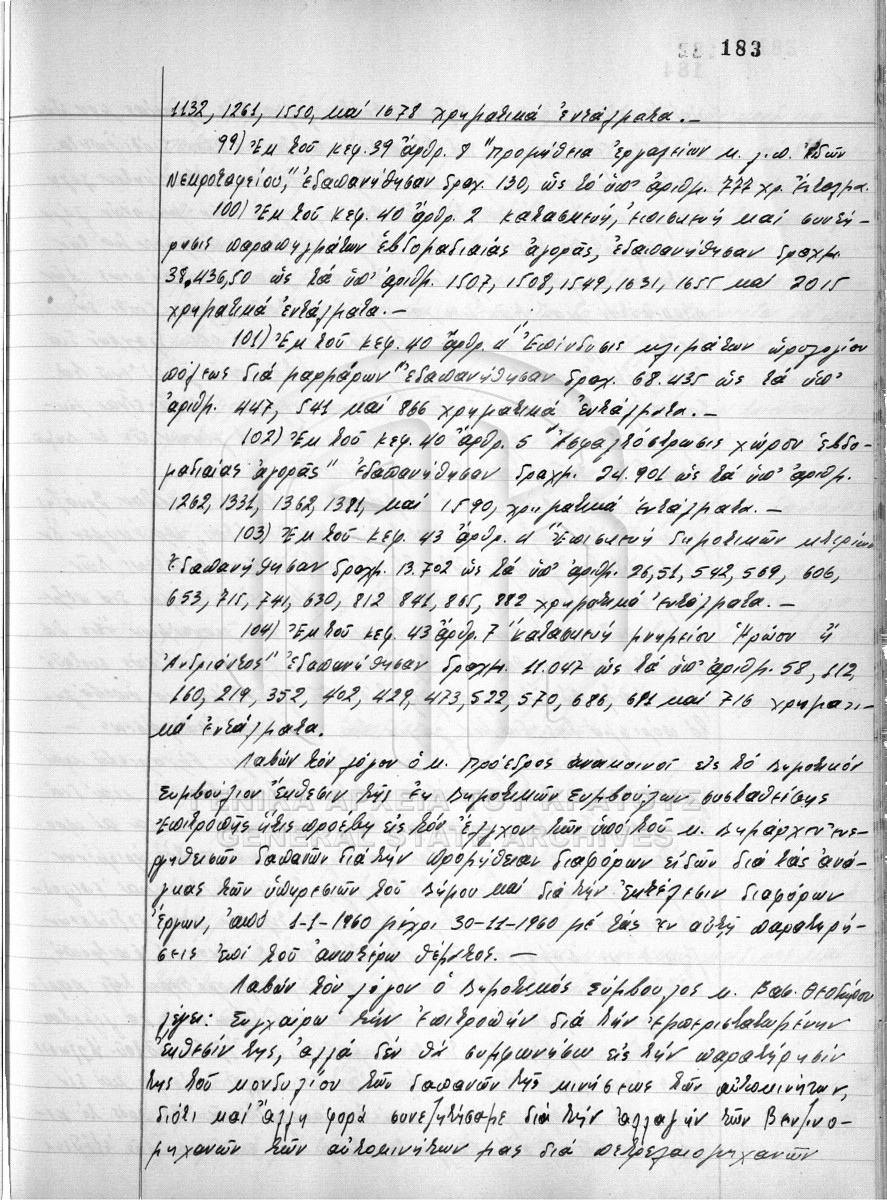 183
1132, 1261, 1550, καί 1678 χρηματικά ἐντάλματα. —
99) Ἐκ τοῦ κεφ. 39 ἄρθρ. 8 "Προμήθεια ἐργαλείων κ.λ.π. εἰδῶν
Νεκροταφείου," ἐδαπανήθησαν δραχ. 130, ὡς τό ὑπ' ἀριθμ. 777 χρ. ἔνταλμα.
100) Ἐκ τοῦ κεφ. 40 ἄρθρ. 2 κατασκευή, ἐπισκευή καί συντή-
ρησις παραπηγμάτων ἑβδομαδιαίας ἀγορᾶς, ἐδαπανήθησαν δραχμ.
38.436,50 ὡς τά ὑπ' ἀριθμ. 1507, 1508, 1549, 1631, 1655 καί 2015
χρηματικά ἐντάλματα. —
101) Ἐκ τοῦ κεφ. 40 ἄρθρ. 4 "Ἐπένδυσις κλιμάτων ὡρολογίου
πόλεως διά μαρμάρων" ἐδαπανήθησαν δραχ. 68.435 ὡς τά ὑπ'
ἀριθμ. 447, 541 καί 866 χρηματικά ἐντάλματα. —
102) Ἐκ τοῦ κεφ. 40 ἄρθρ. 5 "Ἀσφαλτόστρωσις χώρου ἑβδο-
μαδιαίας ἀγορᾶς" ἐδαπανήθησαν δραχμ. 24.901 ὡς τά ὑπ' ἀριθμ.
1262, 1331, 1362, 1381, καί 1590, χρηματικά ἐντάλματα. —
103) Ἐκ τοῦ κεφ. 43 ἄρθρ. 4 "Ἐπισκευή δημοτικῶν κτιρίων
ἐδαπανήθησαν δραχμ. 13.702 ὡς τά ὑπ' ἀριθμ. 26, 51, 542, 569, 606,
653, 715, 741, 630, 812 841, 865, 882 χρηματικά ἐντάλματα. —
104) Ἐκ τοῦ κεφ. 43 ἄρθρ. 7 "Κατασκευή μνημείου Ἡρώου ἤ
Ἀνδριάντος" ἐδαπανήθησαν δραχμ. 11.047 ὡς τά ὑπ' ἀριθμ. 58, 112,
160, 219, 352, 402, 429, 473, 522, 570, 686, 691 καί 716 χρηματι-
κά ἐντάλματα.
Λαβών τόν λόγον ὁ κ. Πρόεδρος ἀνακοινοῖ εἰς τό Δημοτικόν
Συμβούλιον ἔκθεσιν τῆς ἐκ Δημοτικῶν Συμβούλων συσταθείσης
Ἐπιτροπῆς ἥτις προέβη εἰς τόν ἔλεγχον τῶν ὑπό τοῦ κ. Δημάρχου ἐνερ-
γηθεισῶν δαπανῶν διά τήν προμήθειαν διαφόρων εἰδῶν διά τάς ἀνά-
γκας τῶν ὑπηρεσιῶν τοῦ Δήμου καί διά τήν ἐκτέλεσιν διαφόρων
ἔργων, ἀπό 1-1-1960 μέχρι 30-11-1960 μέ τάς ἐν αὐτῇ παρατηρή-
σεις ἐπί τοῦ ἀνωτέρω θέματος. —
Λαβών τόν λόγον ὁ Δημοτικός Σύμβουλος κ. Βασ.
λέγει: Συγχαίρω τήν ἐπιτροπήν διά τήν ἐμπεριστατωμένην
ἔκθεσίν της, ἀλλά δέν θά συμφωνήσω εἰς τήν παρατήρησίν
της τοῦ κονδυλίου τῶν δαπανῶν τῆς κινήσεως τῶν αὐτοκινήτων,
διότι καί ἄλλη φορά συνεζητήσαμε διά τήν ἀλλαγήν τῶν Βενζινο-
μηχανῶν τῶν αὐτοκινήτων μας διά πετρελαιομηχανῶν
ΓΕΝΙΚΑ ΑΡΧΕΙΑ ΤΟΥ ΚΡΑΤΟΥΣ
GENERAL STATE ARCHIVES